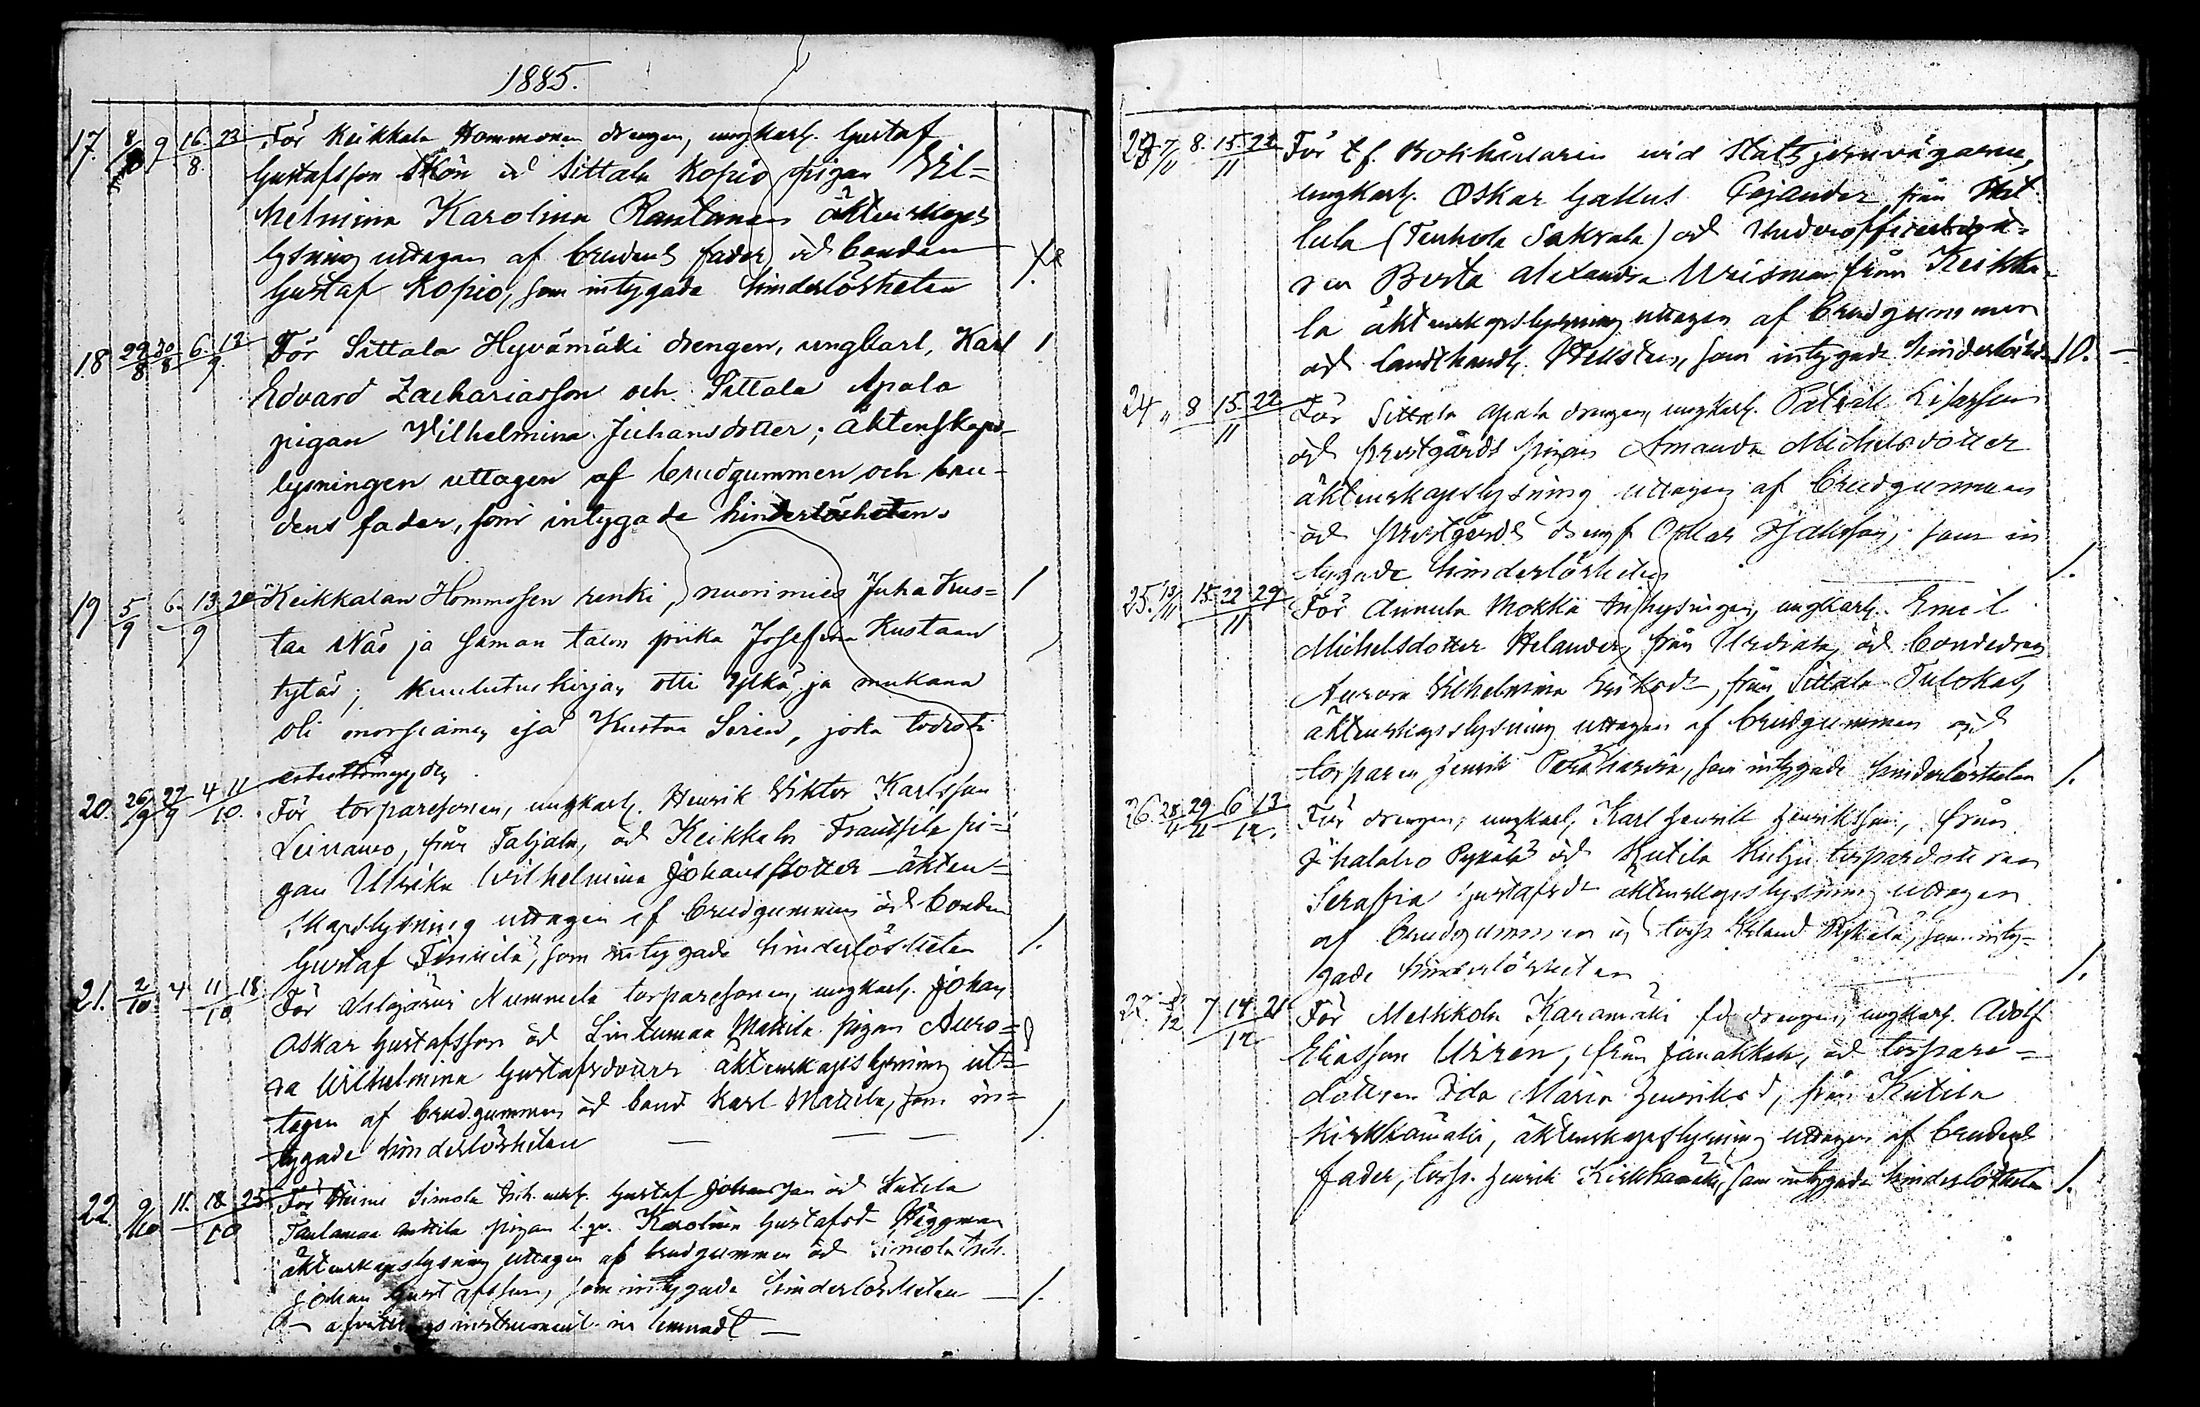 1885.
17. 8/8 9 16. 23 / 8. För Keikkala Hommonen drengen, ungkarl. Gustaf
Gustafsson Skön och Sittala Kopio pigan Vil=
helmina Karolina Rautanen äktenskaps
lysning uttagen af brudens fader och bonden
Gustaf Kopio, som intygade hinderlösheten
18 29/8 30/8 6. 13 / 9. För Sittala Hyvämäki drengen, ungkarl, Karl 1
Edvard Zachariasson och Sittala Apala
pigan Vilhelmina Juhansdotter; äktenskaps-
lysningen uttagen af brudgummen och bru-
dens fader, som intygade hinderlösheten.
19 5/9 6. 13. 20 / 9 Keikkalan Hommosen renki, nuorimies Juha Kus= 1
taa Näs ja saman talon piika Josefina Kustaan
tytär; kuulutuskirjan otti ylkä, ja mukana
oli morsiamen isä Kustaa Seren, joka todisti
esteettömyyden
20. 26/9 27/9 4 11 / 10. För torparesonen, ungkarl. Henrik Viktor Karlsson
Leinawo, från Taljala, och Keikkala Frantsila pi-
gan Ulrika Wilhelmina Johansdotter äkten=
skapslysning uttagen af brudgummen och bonden
Gustaf Finnilä, som intygade hinderlösheten 1.
21. 2/10 4 11 18 / 10 För Nummela torparesonen, ungkarl. Johan
Oskar Gustafsson och Lintumaa Mattila pigan Auro=
ra Wilhelmina Gustafsdotter äktenskapslysning ut=
tagen af brudgummen och bond Karl Mattila, som in=
tygade hinderlösheten 1.
22. 9/10 11. 18. 25 / 10 För Simola Gustaf Johansson och Kutila
pigan Karolina Gustafsd Häggman
äktenskapslysning uttagen af brudgummen och Simola
Johan Gustafsson, som intygade hinderlösheten — 1.
— afvittrings instrument —
23 7/11 8. 15. 22 / 11 För t.f. Bokhållaren vid Statsjernvägarne,
ungkarl. Oskar Gallus från
lula (Tenhola Saksala) och Underofficers
ren Berta Alexandra från Keikka-
la äktenskapslysning uttagen af brudgummen
och landthandl. Hellsten, som intygade hinderlösh. 10. —
24 „ 8 15. 22 / 11 För Sittala Apala drengen, ungkarl.
och prestgårds pigan Amanda Michelsdotter
äktenskapslysning uttagen af brudgummen
och prestgårds Oskar som in
tygade hinderlösheten 1.
25. 13/11 15. 22 29 / 11 För Annula Mokka ungkarl. Emil
Michelsdotter Helander, från Urdiala, och bonde
Aurora Vilhelmina Eriksd, från Sittala Tulokas,
äktenskapslysning uttagen af brudgummen och
torparen Henrik som intygade hinderlösheten 1.
26. 28/11 29/11 6 13 / 12. För drengen, ungkarl, Karl Henrik Henriksson, från
och Kutila torpardotteren
Serafia Gustafsd äktenskapslysning uttagen
af brudgummen och torp Erland Pykälä, som inty=
gade hinderlösheten 1.
/12 7 14 21 / 12 För Mellkola Karamäki drengen, ungkarl. Adolf
Eliasson från Janakkala, och torpare-
dottren Ida Maria Henriksd, från Kutila
Kirkkamäki, äktenskapslysning uttagen af brudens
fader, torp. Henrik Kirkkamäki, som intygade hinderlösheten 1.